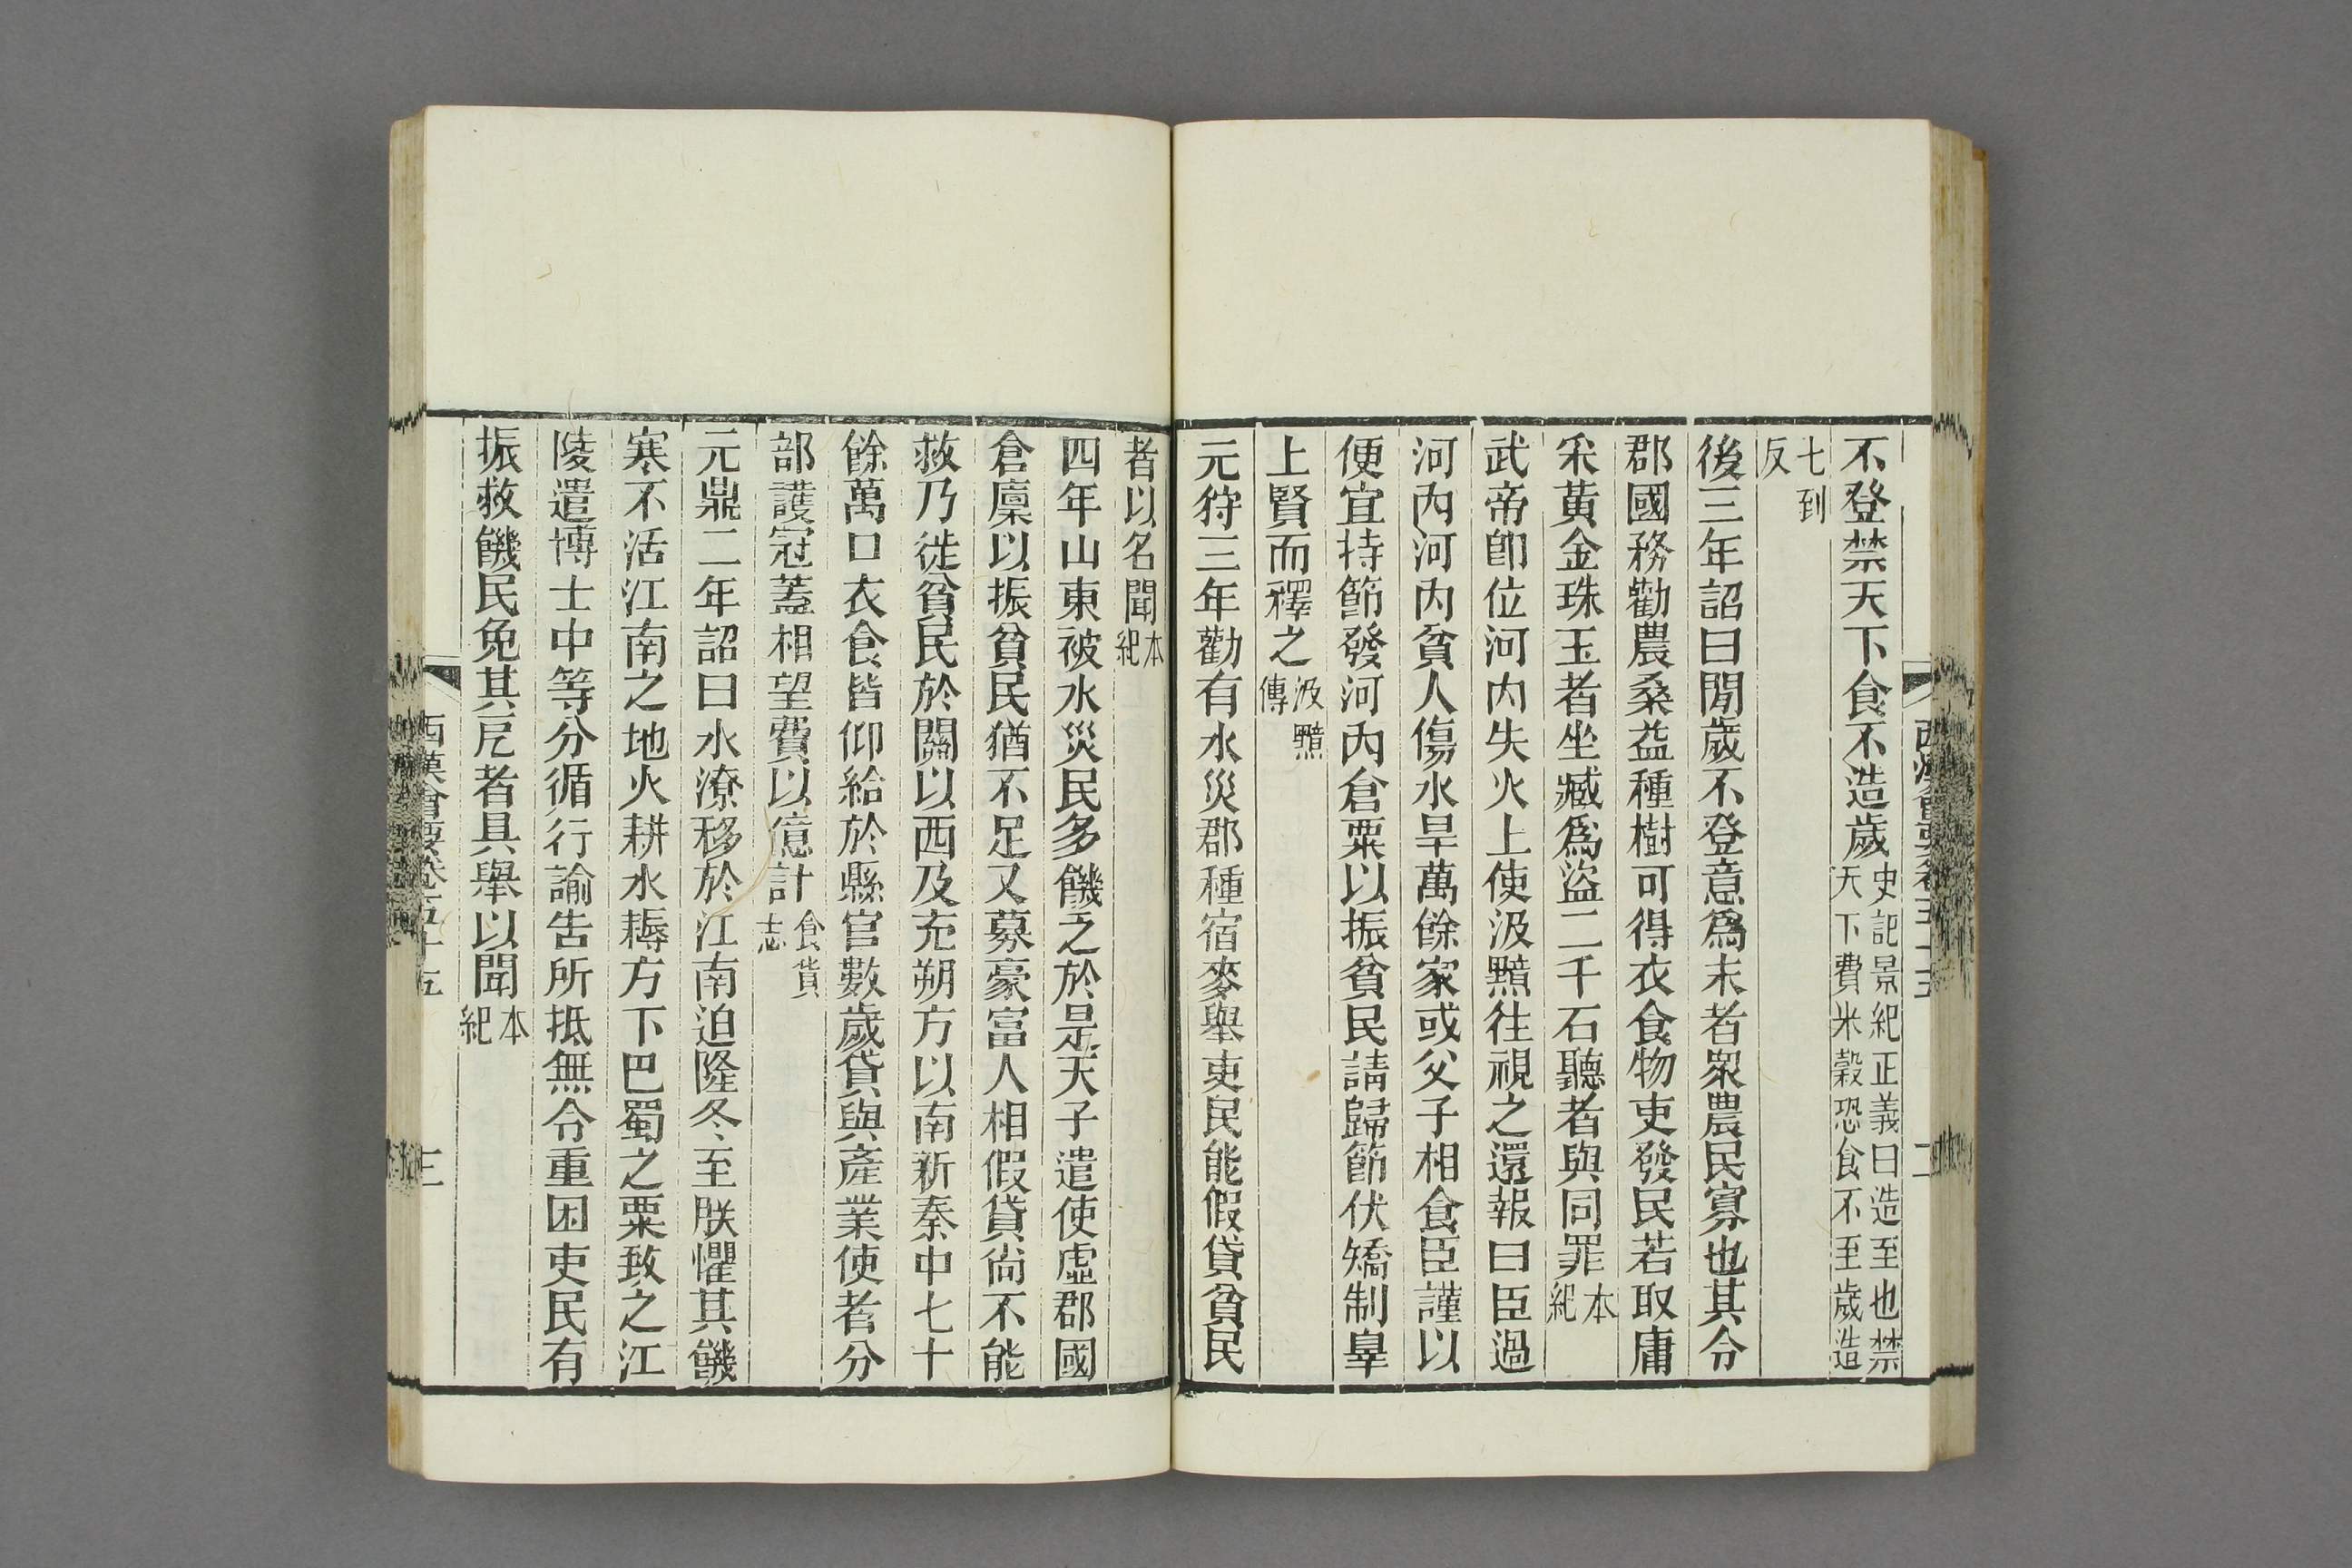 不登禁天下食不造歲史記景紀正義曰造至也禁天下費米穀恐食不至歲造
七到反
後三年詔曰閒歲不登意爲末者衆農民寡也其令
郡國務勸農桑益種樹可得衣食物吏發民若取庸
采黃金珠玉者坐臧爲盜二千石聽者與同罪本紀
武帝卽位河內失火上使汲黯往視之還報曰臣過
河內河內貧人傷水旱萬餘家或父子相食臣謹以
便宜持節發河內倉粟以振貧民請歸節伏矯制辠
上賢而釋之汲黯傳
元狩三年勸有水災郡種宿麥舉吏民能假貸貧民
者以名聞本紀
四年山東被水災民多饑乏於是天子遣使虛郡國
倉廩以振貧民猶不足又募豪富人相假貸尚不能
救乃徙貧民於關以西及充朔方以南新秦中七十
餘萬口衣食皆仰給於縣官數歲貸與產業使者分
部護冠蓋相望費以億計食貨志
元鼎二年詔曰水潦移於江南迫隆冬至朕懼其饑
寒不活江南之地火耕水耨方下巴蜀之粟致之江
陵遣博士中等分循行諭告所抵無令重困吏民有
振救饑民免其戹者具舉以聞本紀
西漢會要卷五十五
三